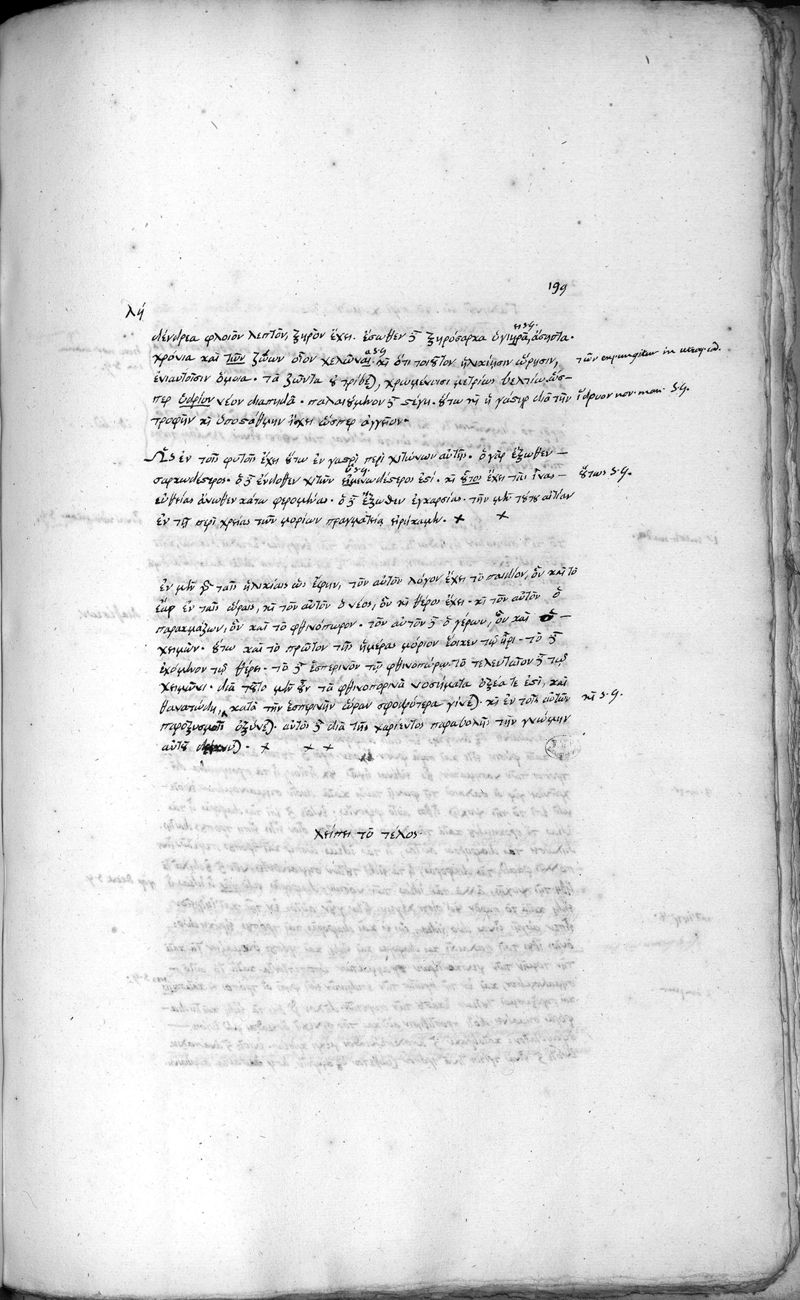 199
λή
δένδρεα φλοιὸν λεπτὸν, ξηρὸν ἔχει. ἔσωθεν δὲ ξηρόσαρκα ὑγιηρὰ, ἄσηπτα.
χρόνια καὶ τῶν ζώων οἷον χελῶναι καὶ ὅτι τοιοῦτον ἡλικίησιν ὥρησιν,
ἐνιαυτοῖσιν ὅμοια. τὰ ζῶντα οὐ τρίβεται, χρωμένοισι μετρίως βελτίω, ὥσ-
περ ὑδρίον νέον διαπηδᾷ. παλαιούμενον δὲ στέγει. οὕτω καὶ ἡ γαστὴρ διὰ τὴν
τροφὴν καὶ ὑποστάθμην ἴσχει ὥσπερ ἀγγεῖον.
Ὡς ἐν τοῖς φυτοῖς ἔχει οὕτω ἐν γαστρὶ περὶ χιτώνων αὐτῆς. ὁ γὰρ ἔξωθεν
σαρκωδέστερος. ὁ δὲ ἔνδοθεν χιτὼν ὑμενωδέστερός ἐστι. καὶ οὗτος ἔχει τὰς ἶνας
εὐθείας ἄνωθεν κάτω φερομένας. ὁ δὲ ἔξωθεν ἐγκαρσίας. τὴν μὲν τούτου αἰτίαν
ἐν τῇ περὶ χρείας τῶν μορίων πραγματείᾳ εἰρήκαμεν. + +
ἐν μὲν γὰρ ταῖς ἡλικίαις ὡς ἔφην, τὸν αὐτὸν λόγον ἔχει τὸ παιδίον, ὃν καὶ τὸ
ἔαρ ἐν ταῖς ὥραις, καὶ τὸν αὐτὸν ὁ νέος, ὃν καὶ θέρος ἔχει. καὶ τὸν αὐτὸν ὁ
παρακμάζων, ὃν καὶ τὸ φθινόπωρον. τὸν αὐτὸν δὲ ὁ γέρων, ὃν καὶ ὁ
χειμών. οὕτω καὶ τὸ πρῶτον τῆς ἡμέρας μόριον ἔοικεν τῷ ἦρι. τὸ δὲ
ἐχόμενον τῷ θέρει. τὸ δὲ ἑσπερινὸν τῷ φθινοπώρῳ τὸ τελευταῖον δὲ τῷ
χειμῶνι. διὰ τοῦτο μὲν οὖν τὰ φθινοπωρινὰ νοσήματα ὀξέα τέ ἐστι, καὶ
θανατώδη, κατὰ τὴν ἑσπερινὴν ὥραν σφοδρότερα γίνεται. καὶ ἐν τοῖς αὐτῶν καὶ s.g.
παροξυσμοῖς ὀξύνεται. αὐτὸς δὲ διὰ τῆς χαρίεντος παραβολῆς τὴν γνώμην
αὐτοῦ + + +
λείπει τὸ τέλος.